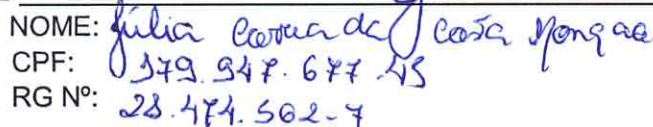 NOME: Júlia Correa da Costa
CPF: 379.947.677-45
RG Nº: 28.474.562-7